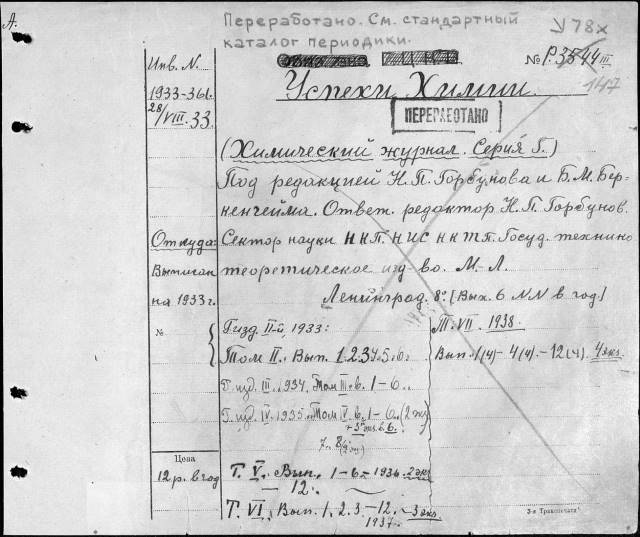 А.
Переработано. См. стандартный
каталог периодики.
У 78х
Инв. N.
№ P.3544 III
147
1933-361.
28/VIII.33.
Успехи Химии.
ПЕРЕРАБОТАНО
(Химический журнал. Серия Б.)
Под редакцией Н.П. Горбунова и Б.М. Бер-
кенгейма. Ответ. редактор Н.П. Горбунов.
Откуда:
Сектор науки НКП. НИС НКТП. Госуд. технико
Выписан
теоретическое изд-во. М.-Л.
на 1933 г.
Ленинград. 8º. [Вых. 6 NN в год.]
№
Г. изд. II-й, 1933:
Том II. Вып. 1.2.3.4.5.6.
Г. изд. III. 1934. Том III. в. 1-6.
Г. изд. IV. 1935. Том IV. в. 1-6. (2 экз)
+ 3й экз. в. 6.
7. 8 (2 экз)
Т. VII. 1938.
Вып. 1(4)-4(4).-12(4). 4 экз.
Цена
12 р. в год
Т. V. Вып. 1-6- 1936. 2 экз
— 12.
Т. VI. Вып. 1. 2. 3.-12. - 3 экз
1937.
3-я Транспечать